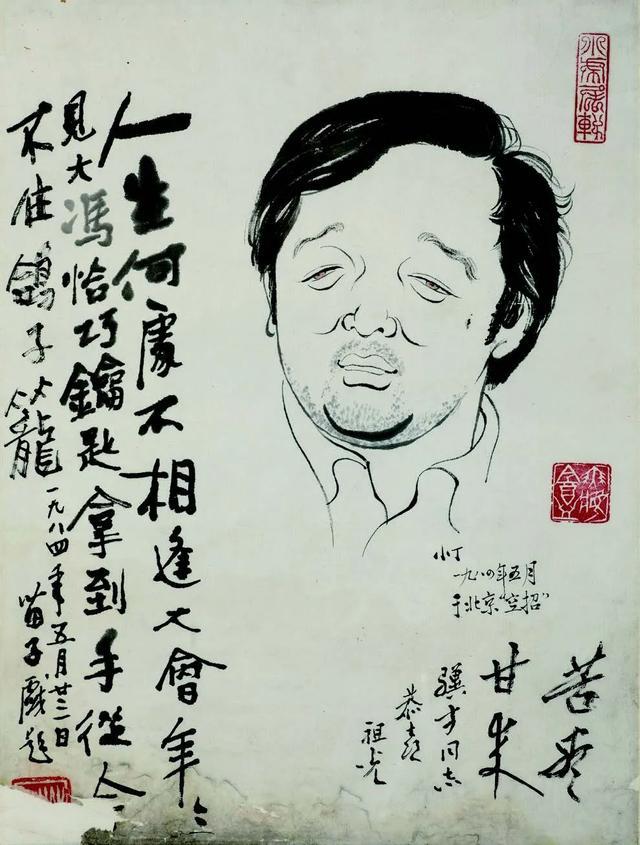 苦尽
甘来
驥才同志
恭喜
祖光
小丁
一九八四年五月
于北京"空招"
人生何處不相逢大會年々
見大馮恰巧鑰匙拿到手從今
不住鴿子籠
一九八四年五月廿二日
苗子戲題